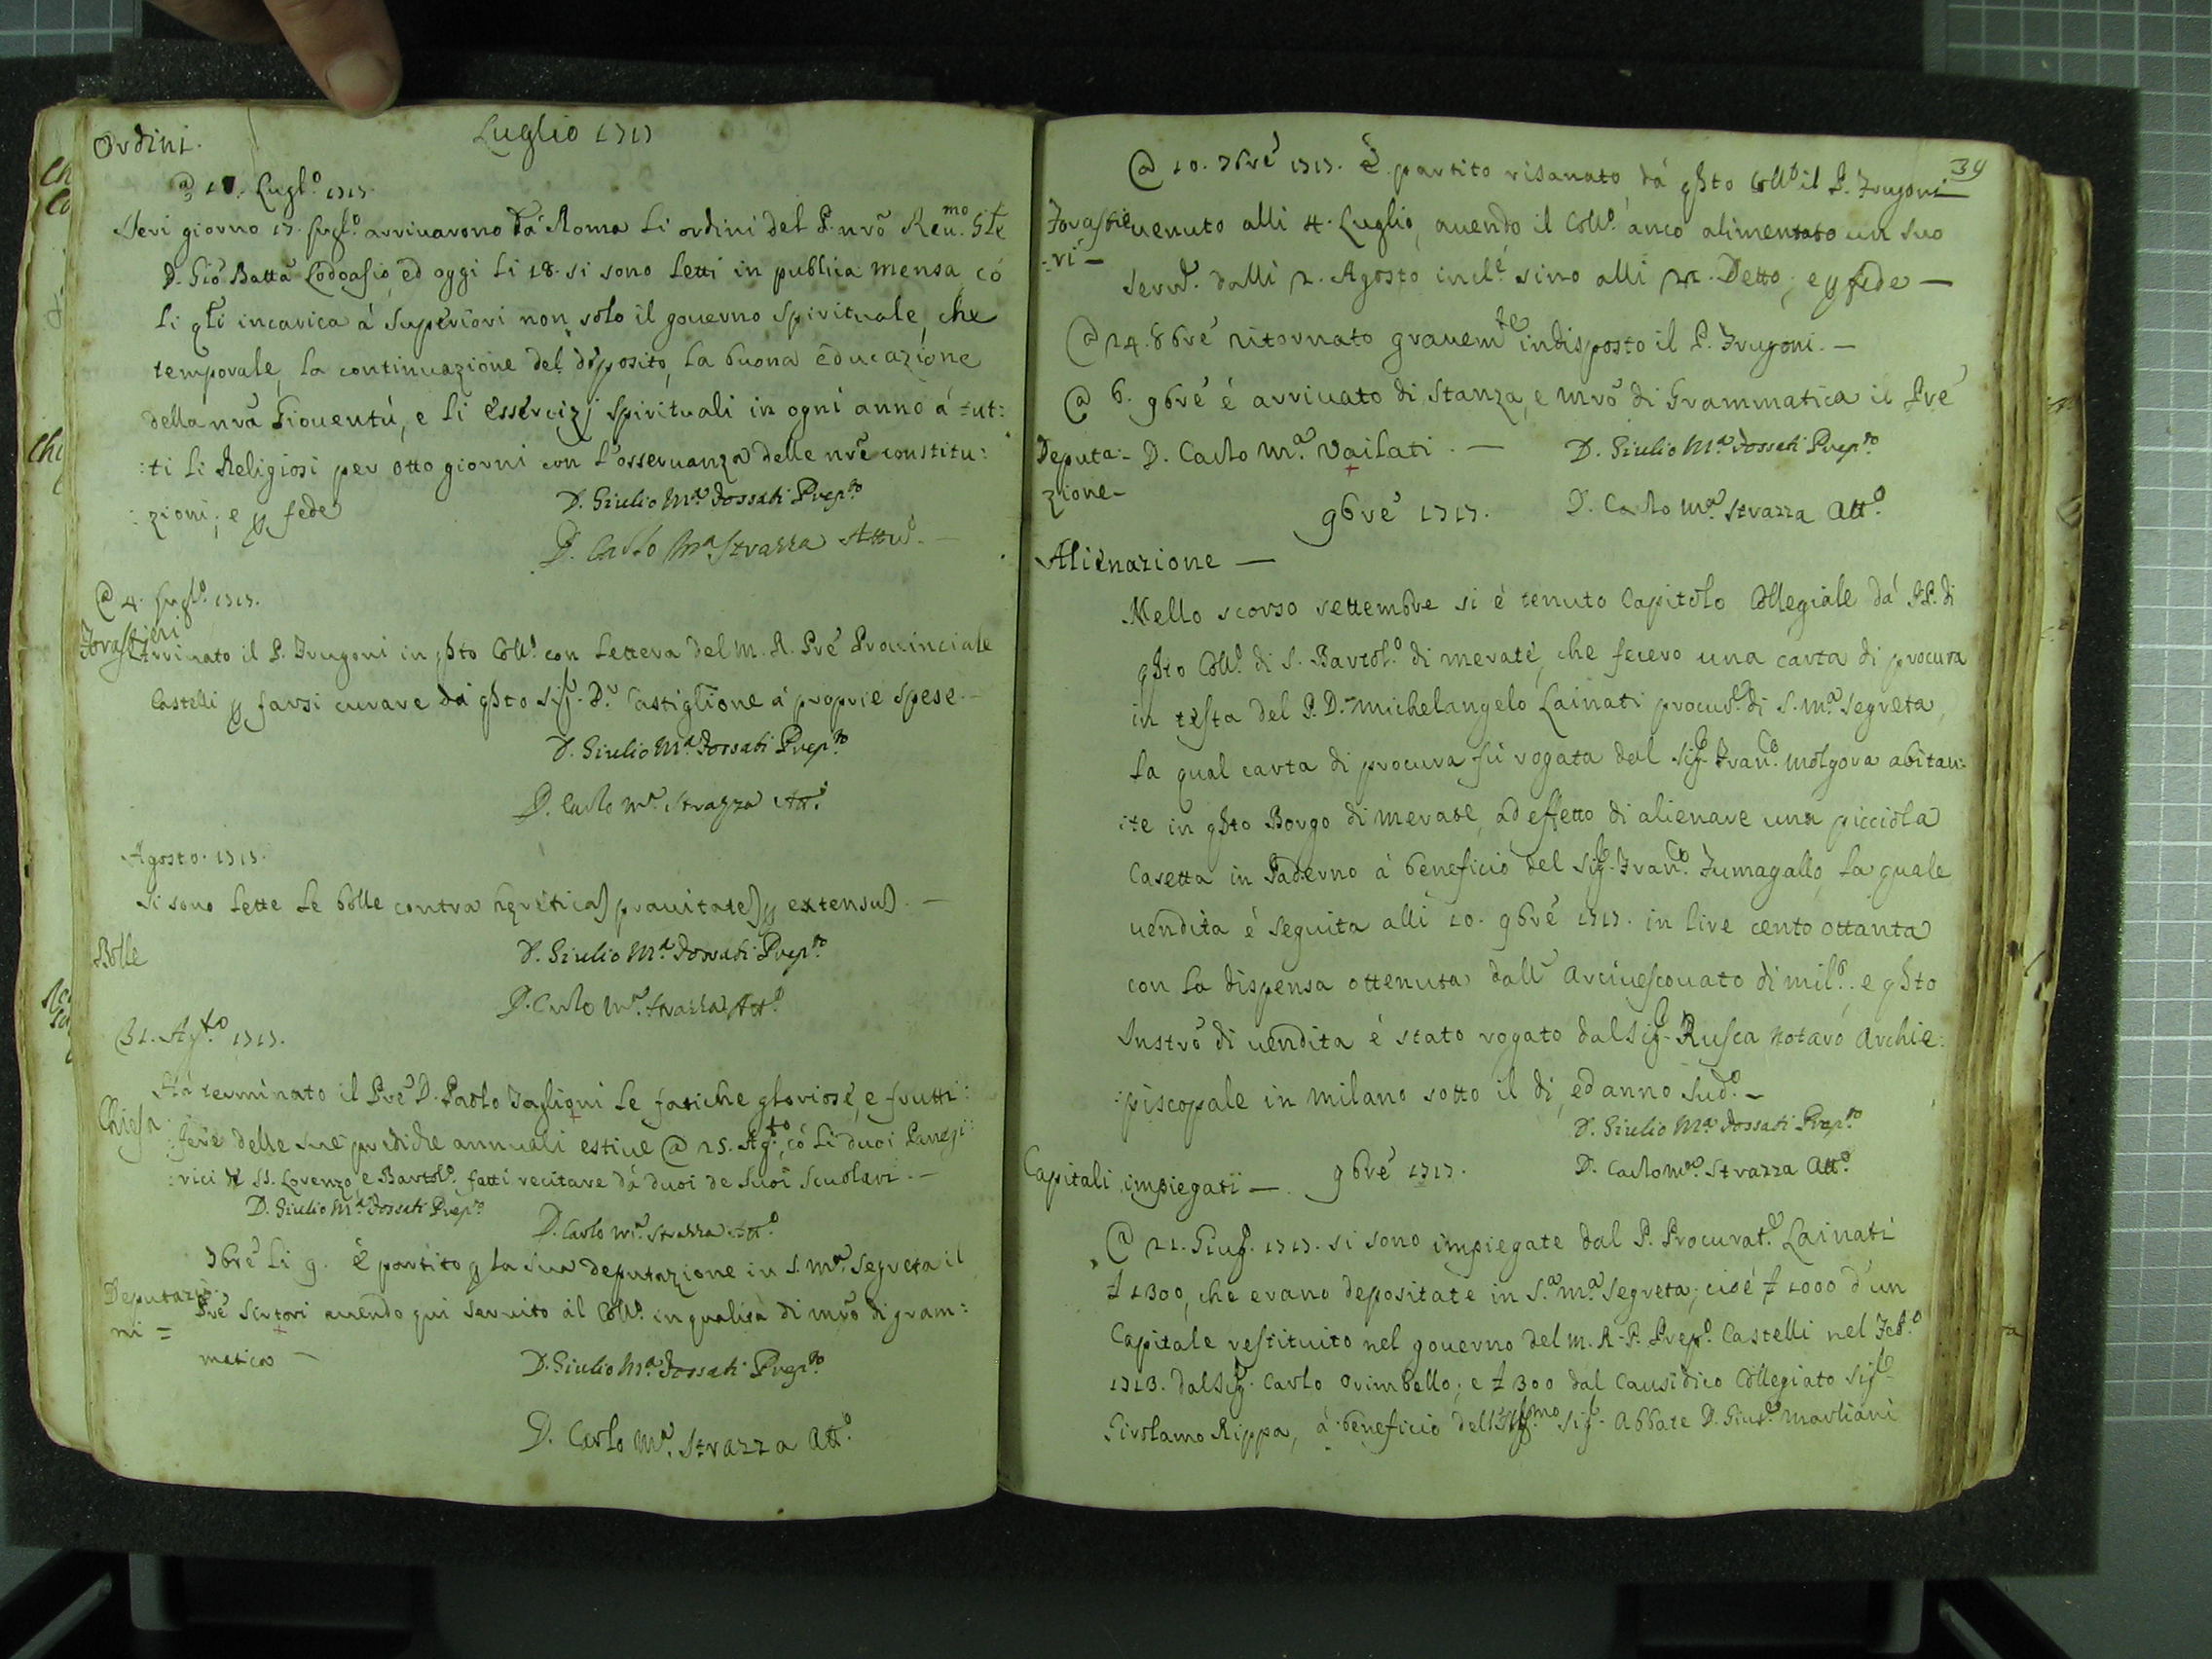 Ordini.
Luglio 1717
@ 18. Lugl.º 1717.
Ieri giorno 17. lugl.º arrivarono dá Roma li ordini del P. nrõ Reu.mo Gle
D. Gio Batta Lodoasio, ed oggi li 18. si sono letti in publica mensa, có
li qli incarica á Superiori non solo il gouerno Spirituale, che
temporale, la continuazione del diposito, la buona educazione
della nrã Giouentú, e li essercizj Spirituali in ogni anno á tut:
:ti li Religiosi per otto giorni con l'osseruanza delle nrẽ constitu:
:zioni; e p fede
D. Giulio M.a Fossati Prep.to
D. Carlo M.a Strazza Attu.º
@ 4. lugl.º 1717.
Forastieri
Arriuato il P. Frugoni in qsto Coll.º con lettera del M. R. Prẽ Prouinciale
Castelli p farsi curare da qsto Sig.r D.r Castiglione á proprie spese. –
D. Giulio M.a Fossati Prep.to
D. Carlo M.a Strazza Att.º
Agosto. 1717.
Si sono lette le bolle contra hereticas prauitates p extensus. –
Bolle
D. Giulio M.a Fossati Prep.to
D. Carlo M.a Strazza Att.º
31. Ag.to 1717.
Há terminato il Prẽ D. Paolo Taglioni le fatiche gloriose, e frutti:
Chiesa
:fere delle sue prediche annuali estiue @ 25. Ag.to, có li duoi Paneji:
:rici de SS. Lorenzo, e Bartol.º fatti recitare dá duoi de Suoi Scuolari. –
D. Giulio M.a Fossati Prep.to
D. Carlo M.a Strazza Att.º
7bre li 9. é partito p la sua deputazione in S. M.a Segreta il
Deputazio:
ni =
Prẽ Sirtori auendo qui seruito al Coll.º in qualitá di mrõ di gram:
matica –
D. Giulio M.a Fossati Prep.to
D. Carlo M.a Strazza Att.º
39
@ 10. 7bre 1717. é partito risanato dá qsto Coll.º il P. Frugoni
Forastie
:ri –
uenuto alli 4. Luglio, auendo il Coll.º anco alimentato un suo
seru.e dalli 2. Agosto incl.e sino alli 22. Detto; e p fede –
@ 24. 8bre ritornato grauem.te indisposto il P. Frugoni. –
@ 6. 9bre é arriuato di Stanza, e mrõ di Grammatica il Prẽ
Deputa:
zione –
D. Carlo M.a Vailati. –
D. Giulio M.a Fossati Prep.to
9bre 1717.
D. Carlo M.a Strazza Att.º
Alienazione –
Nello scorso settembre si é tenuto Capitolo Collegiale dá PP. di
qsto Coll.º di S. Bartol.º di merate, che fecero una carta di procura
in testa del P. D. Michelangelo Lainati procur.e di S. M.a Segreta,
la qual carta di procura fú rogata dal Sig.r Fran.º Molgora abitan:
:te in qsto Borgo di merate, ad effetto di alienare una picciola
Casetta in Paderno á beneficio del Sig.r Fran.º Fumagallo, la quale
uendita é seguita alli 10. 9bre 1717. in lire cento ottanta
con la dispensa ottenuta dall' Arciuescouato di mil.º. e qsto
Instrõ di uendita é stato rogato dal Sig.r Rusca Notaro Archie:
:piscopale in milano sotto il di, ed anno sud.º –
D. Giulio M.a Fossati Prep.to
Capitali impiegati –
9bre 1717.
D. Carlo M.a Strazza Att.º
@ 21. Giug. 1717. si sono impiegate dal P. Procurat.e Lainati
£ 1300, che erano depositate in S.a M.a Segreta; cioé £ 1000 d'un
Capitale restituito nel gouerno del M. R. P. Prep.º Castelli nel Feb.º
1713. dal Sig.r Carlo Orimbello; e £ 300 dal Causidico Collegiato Sig.r
Girolamo Rippa, á beneficio dell' Ill.mo Sig.r Abbate D. Gius.e Marliani